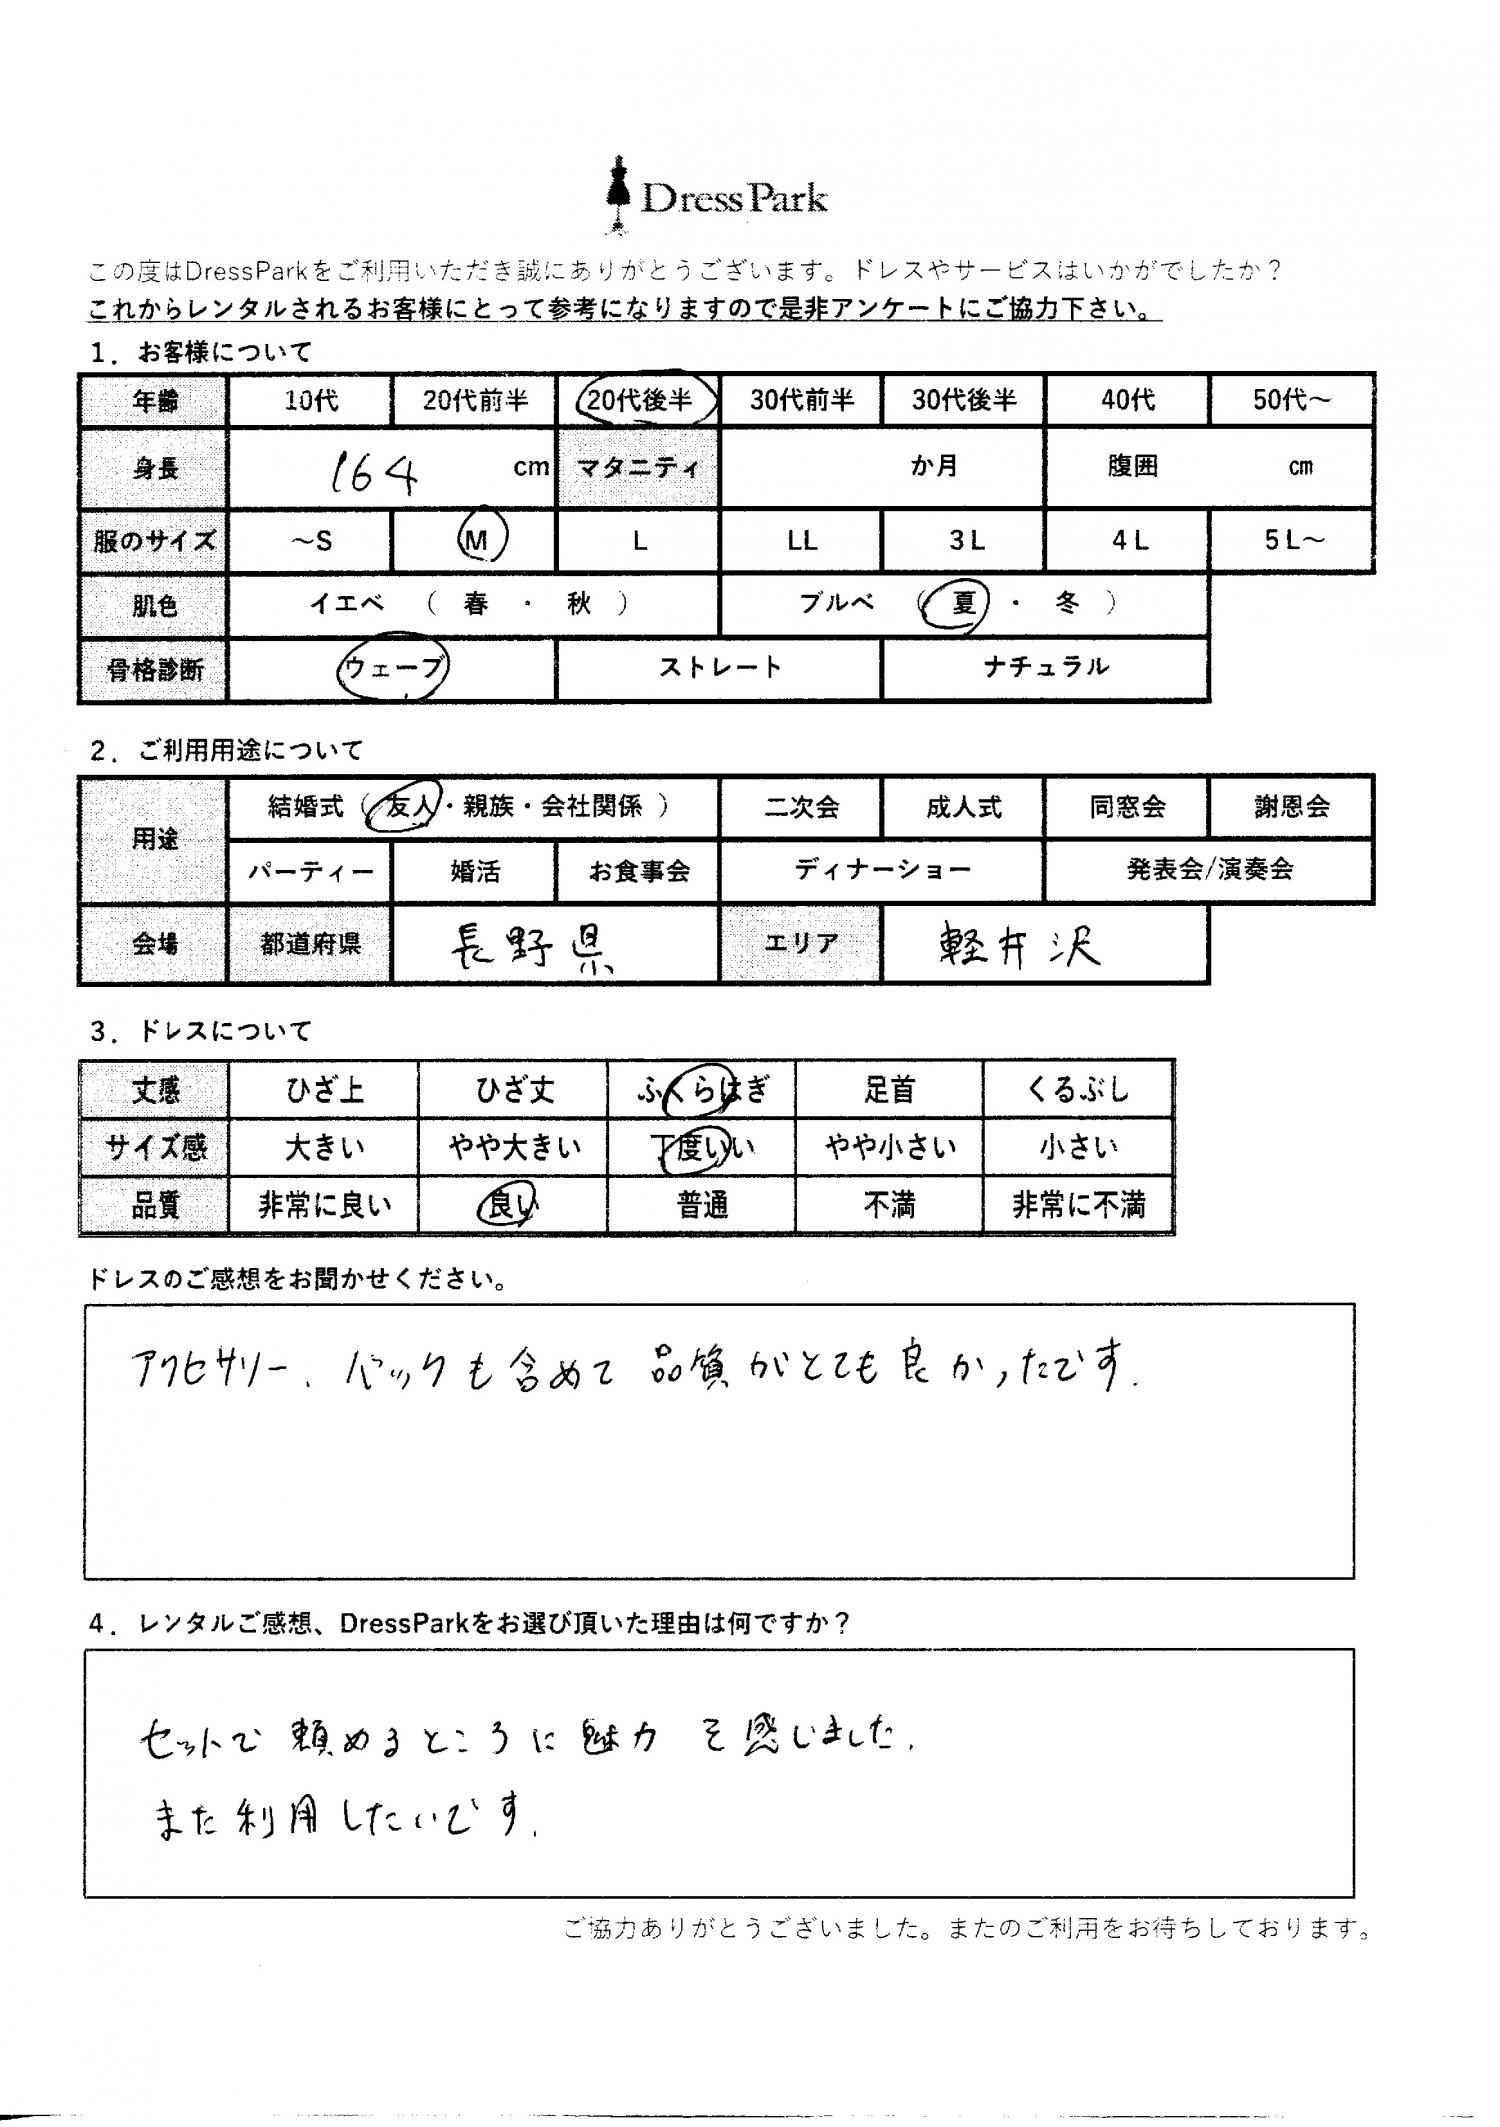 DressPark
この度はDressParkをご利用いただき誠にありがとうございます。ドレスやサービスはいかがでしたか？
これからレンタルされるお客様にとって参考になりますので是非アンケートにご協力下さい。
1．お客様について
年齢 10代 20代前半 20代後半 30代前半 30代後半 40代 50代～
身長 164 cm マタニティ か月 腹囲 cm
服のサイズ ～S M L LL 3L 4L 5L～
肌色 イエベ （ 春 ・ 秋 ） ブルベ （ 夏 ・ 冬 ）
骨格診断 ウェーブ ストレート ナチュラル
2．ご利用用途について
用途 結婚式（ 友人・親族・会社関係 ） 二次会 成人式 同窓会 謝恩会
パーティー 婚活 お食事会 ディナーショー 発表会/演奏会
会場 都道府県 長野県 エリア 軽井沢
3．ドレスについて
丈感 ひざ上 ひざ丈 ふくらはぎ 足首 くるぶし
サイズ感 大きい やや大きい 丁度いい やや小さい 小さい
品質 非常に良い 良い 普通 不満 非常に不満
ドレスのご感想をお聞かせください。
アクセサリー、バックも含めて品質がとても良かったです.
4．レンタルご感想、DressParkをお選び頂いた理由は何ですか？
セットで頼めるところに魅力を感じました.
また利用したいです.
ご協力ありがとうございました。またのご利用をお待ちしております。